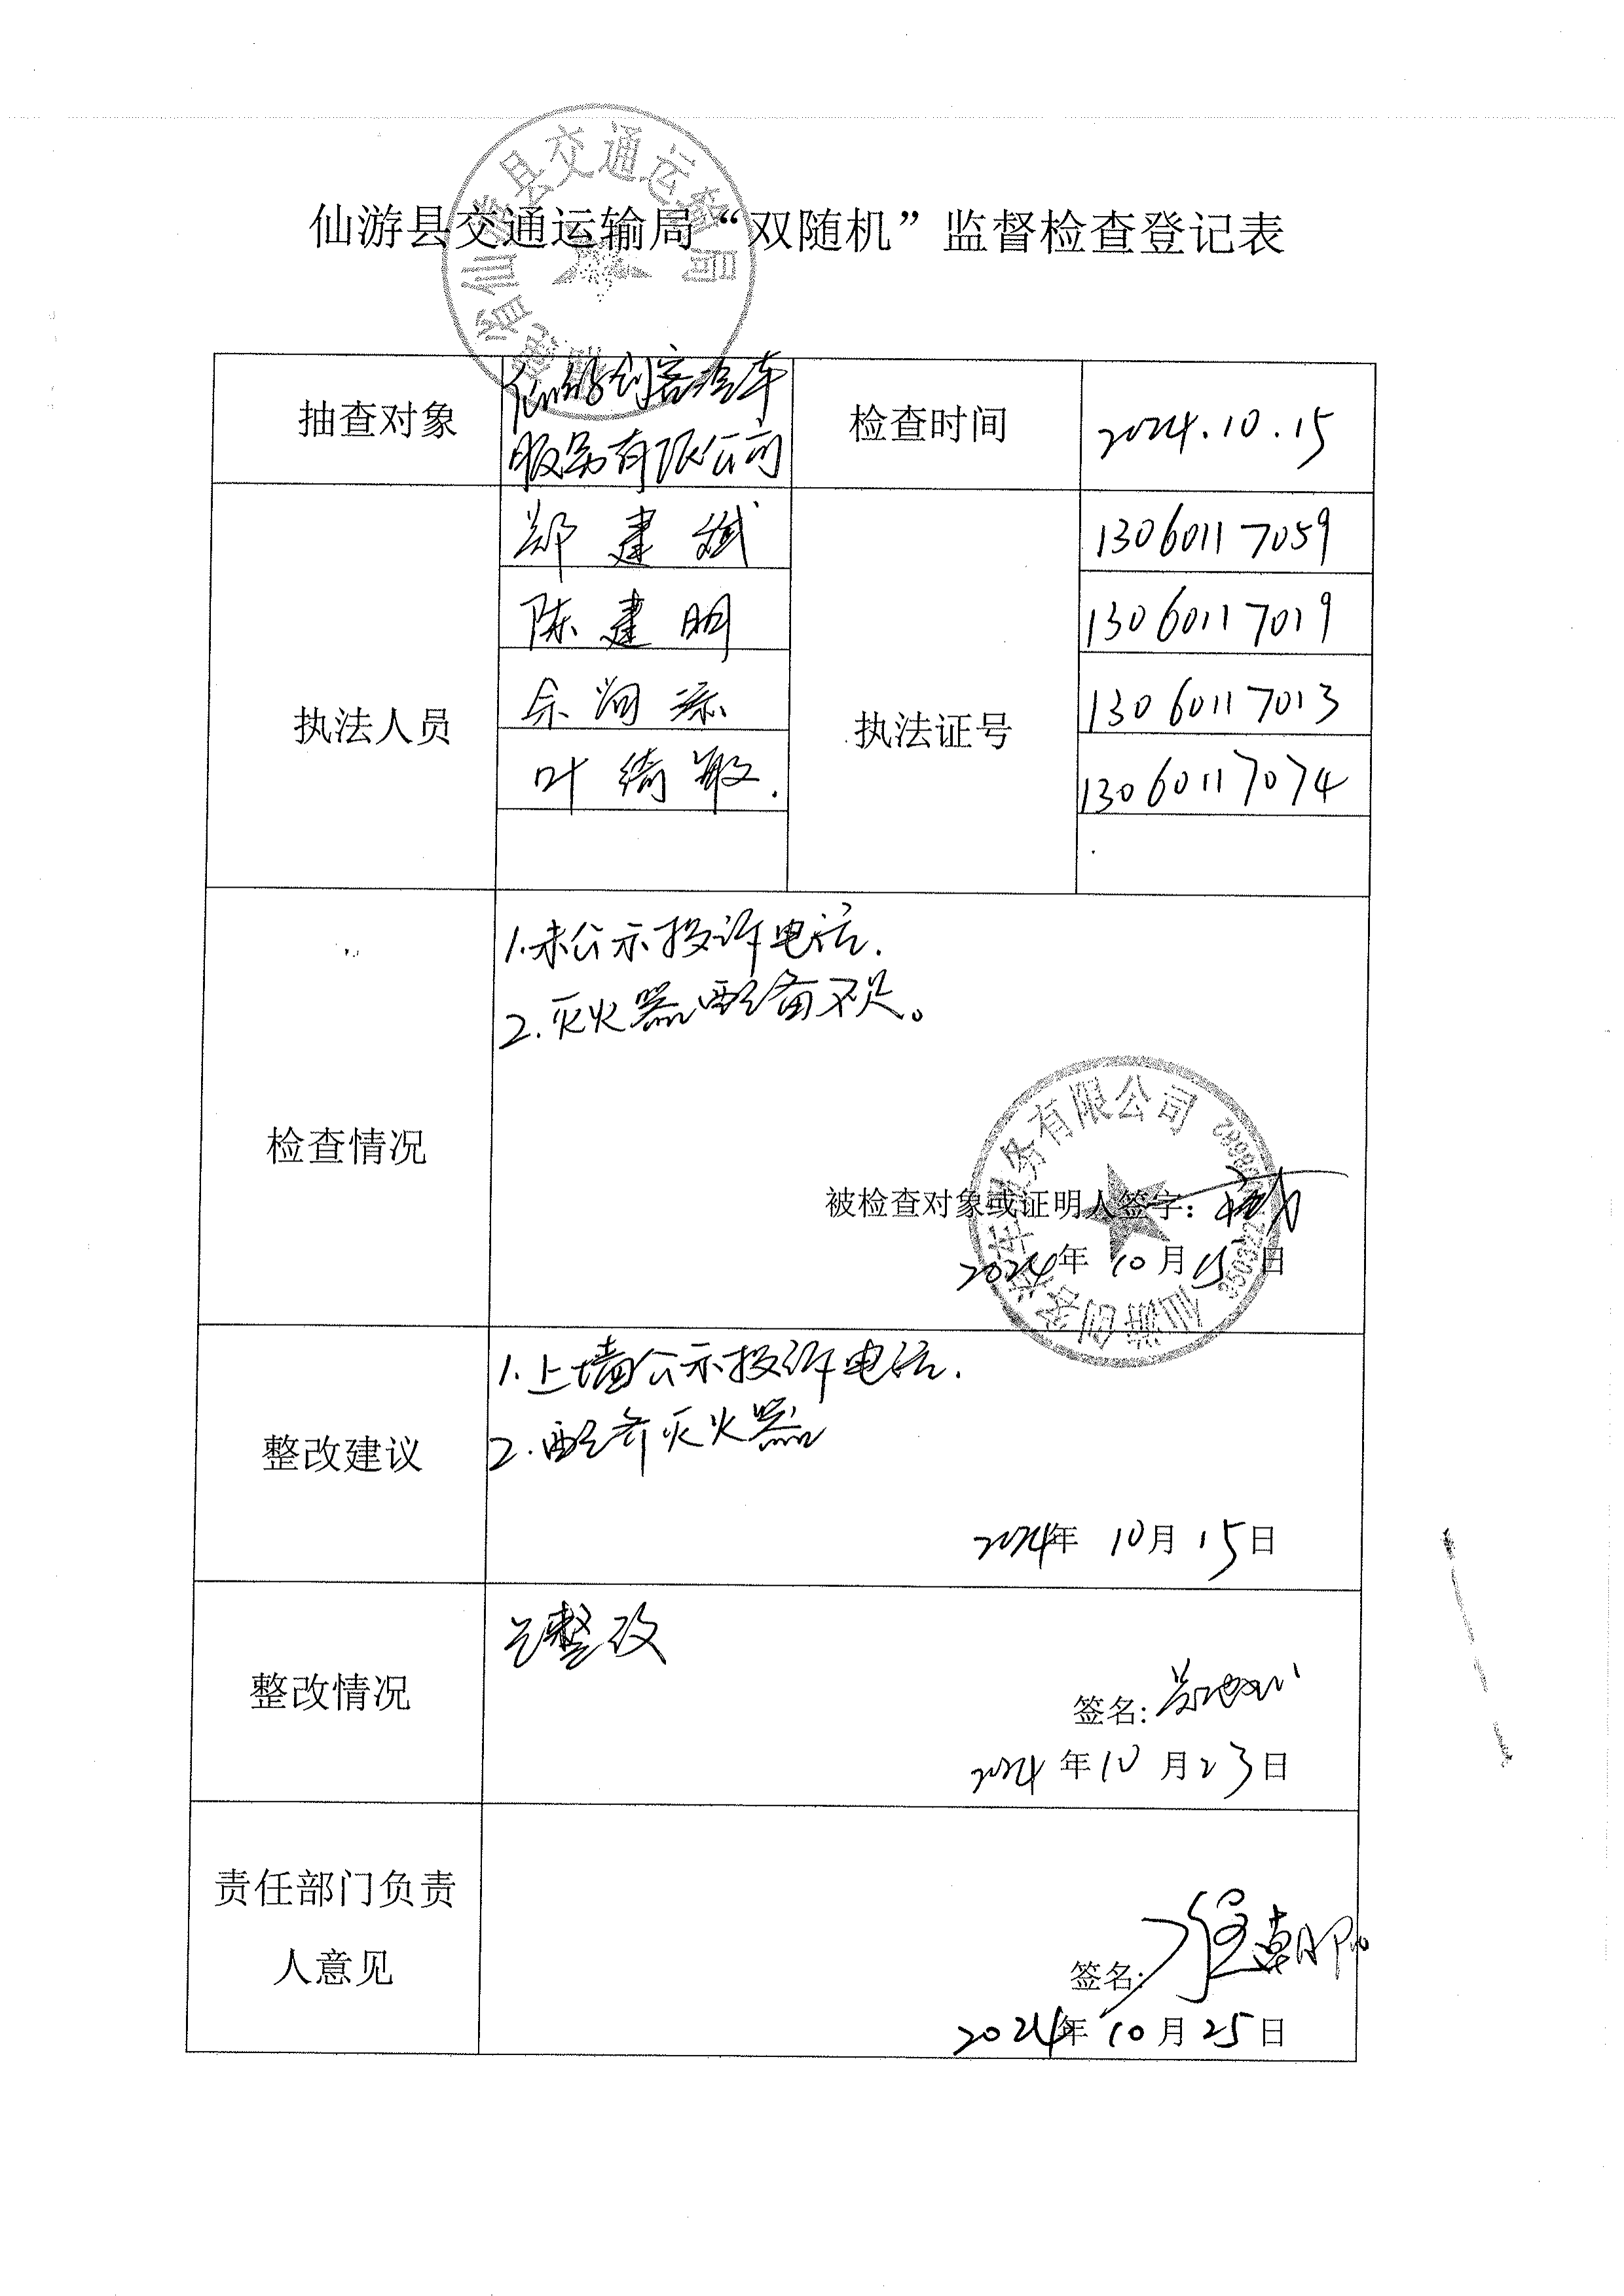 仙游县交通运输局“双随机”监督检查登记表
抽查对象
仙游创客汽车
服务有限公司
检查时间
2024.10.15
执法人员
郑建斌
陈建明
叶绮敏.
执法证号
13060117059
13060117019
13060117013
13060117074
检查情况
1.未公示投诉电话.
2.灭火器配备不足。
被检查对象或证明人签字:
2024年10月15日
整改建议
1.上墙公示投诉电话.
2.配齐灭火器
2024年10月15日
整改情况
已整改
签名:
2024年10月23日
责任部门负责
人意见
签名:
2024年10月25日